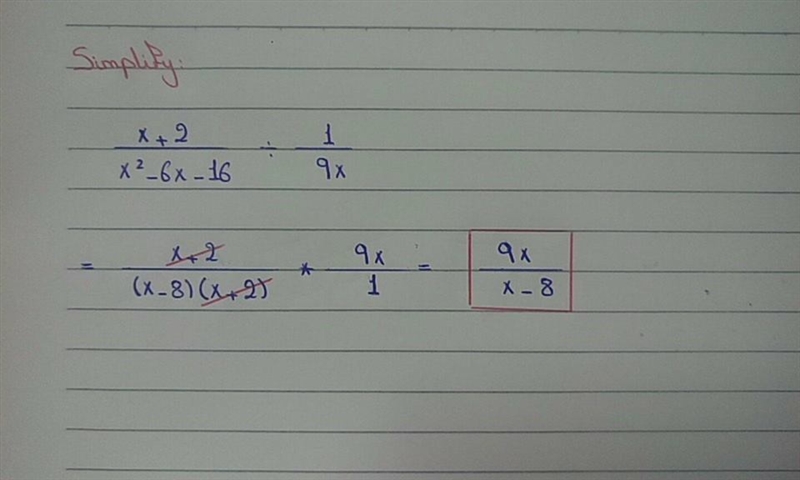 Simplify:
x+2/x²-6x-16 ÷ 1/9x
= x+2/(x-8)(x+2) * 9x/1 = 9x/x-8